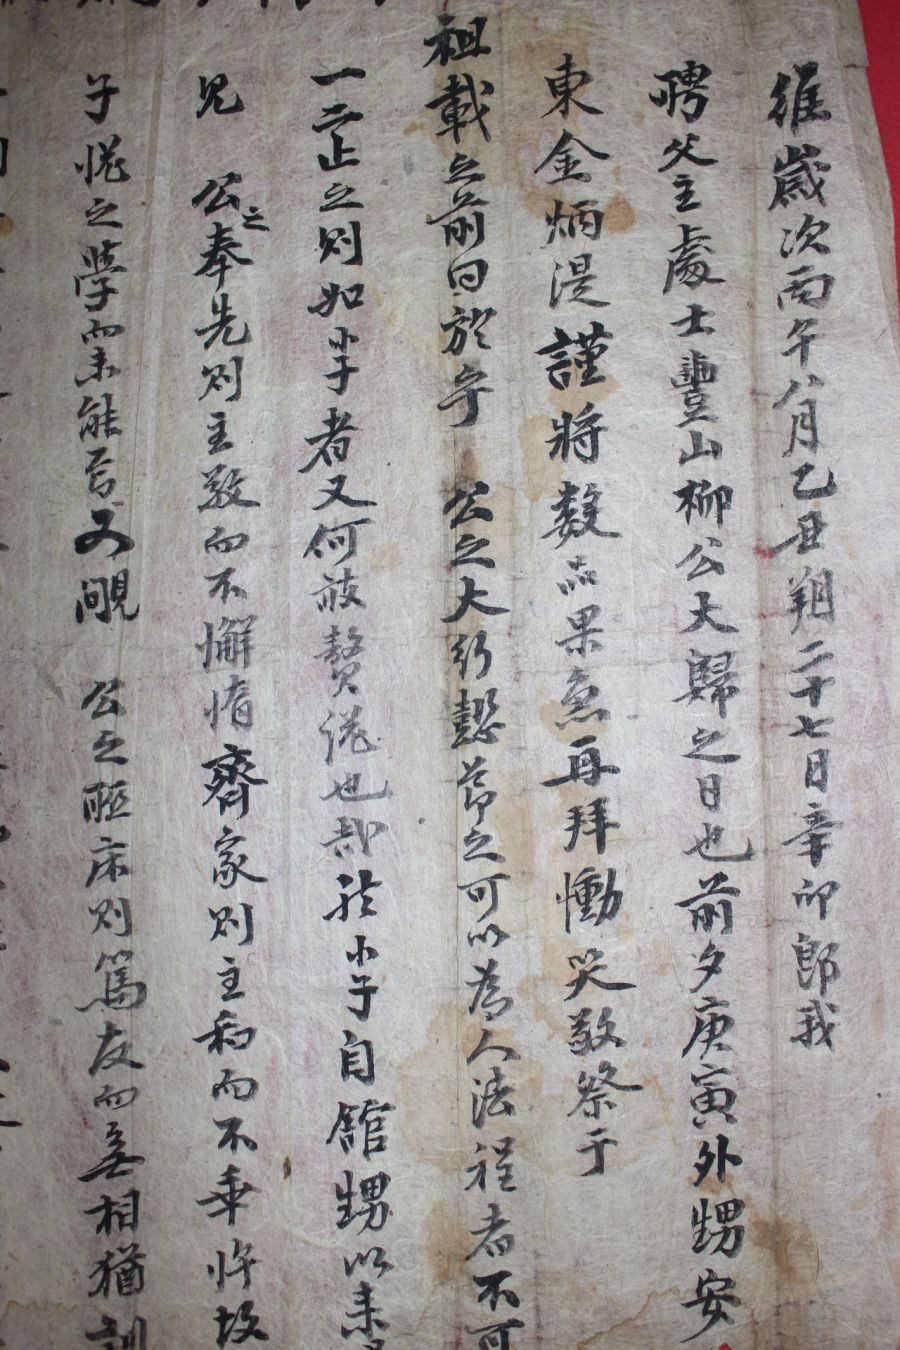 維歲次丙午八月乙丑朔二十七日辛卯郎我
聘父主處士豐山柳公大歸之日也前夕庚寅外甥安
東金炳湜謹將數品果魚再拜慟哭敬祭于
祖載之前曰於乎 公之大行懿節之可以為人法程者不可
一二止之則如小子者又何敢贅說也哉於小子自舘甥以來
見 公之奉先則主敬而不懈惰齊家則主和而不乖忤故
子悅之學而未能焉又覵 公之 床則篤友而無相猶訓